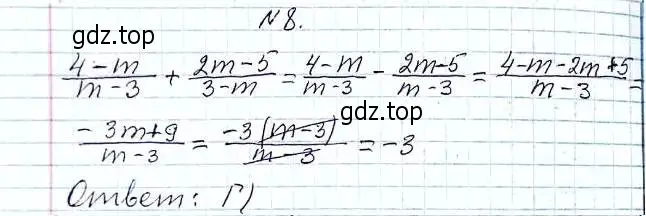 №8.
gdz.top
(4-m)/(m-3) + (2m-5)/(3-m) = (4-m)/(m-3) - (2m-5)/(m-3) = (4-m-2m+5)/(m-3) =
gdz.top
(-3m+9)/(m-3) = (-3(m-3))/(m-3) = -3
gdz.top
Ответ: Г)